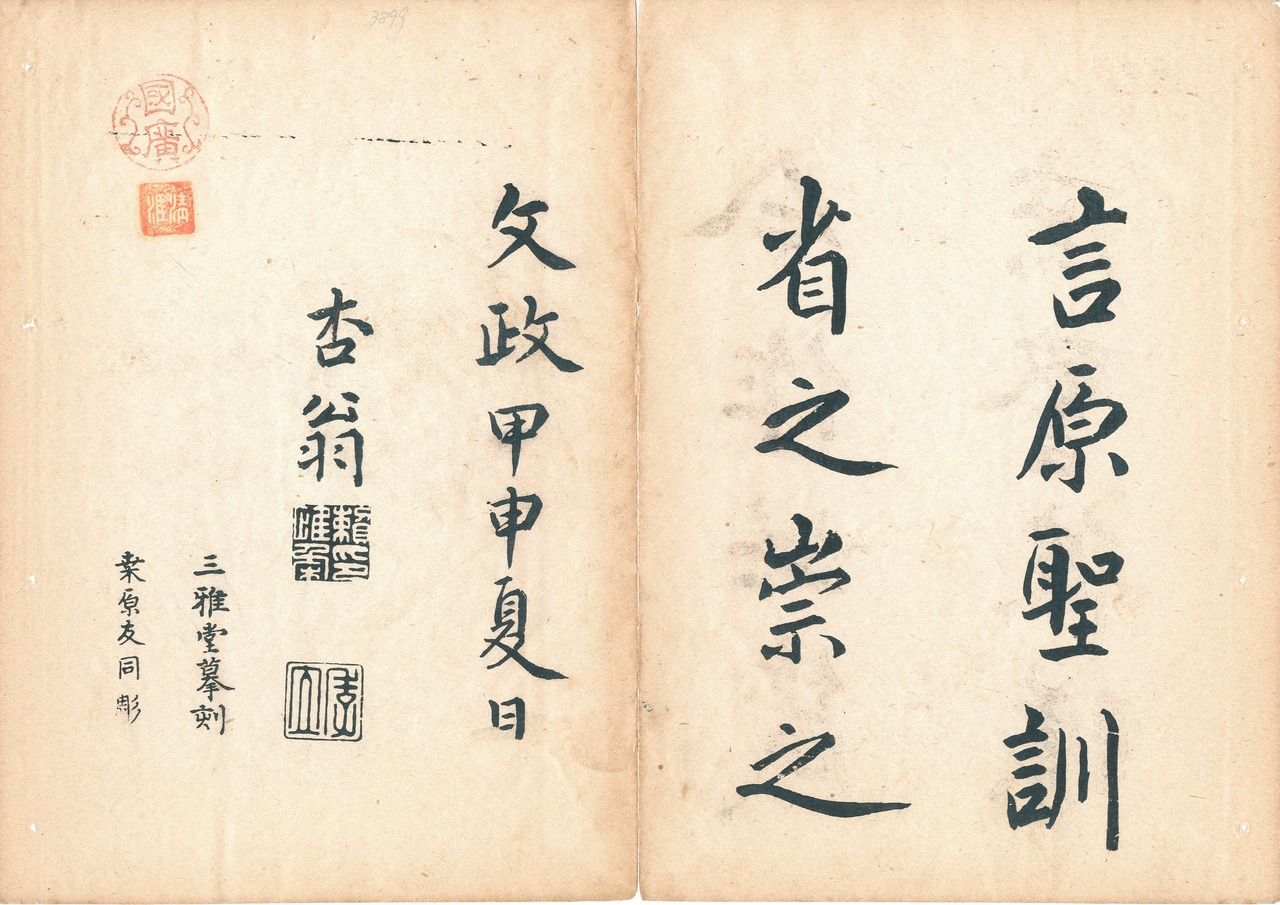 言原聖訓
省之崇之
文政甲申夏日
杏翁
賴惟柔印
三雅堂摹刻
桒原友同彫
國廣
3899